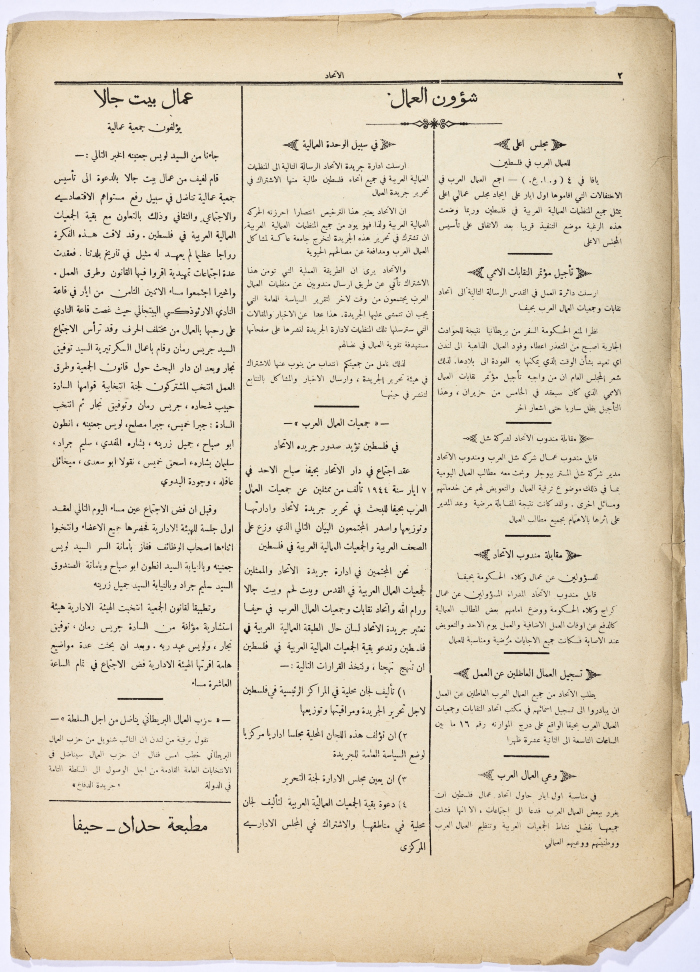 ٢
الاتحاد
شؤون العمال
مجلس اعلى
للعمال العرب في فلسطين
يافا في ٤ (و. ا. ع.) — اجمع العمال العرب في
الاحتفالات التي اقاموها اول ايار على ايجاد مجلس عمالي اعلى
يمثل جميع المنظمات العمالية العربية في فلسطين وربما وضعت
هذه الرغبة موضع التنفيذ قريبا بعد الاتفاق على تأسيس
المجلس الاعلى
تأجيل مؤتمر النقابات الاممي
ارسلت دائرة العمل في القدس الرسالة التالية الى اتحاد
نقابات وجمعيات العمال العرب بحيفا
نظرا لمنع الحكومة السفر من بريطانيا نتيجة للحوادث
الجارية اصبح من المتعذر اعطاء وفود العمال الذاهبة الى لندن
اي تعهد بشأن الوقت الذي يمكنها به العودة الى بلادها. لذلك
شعر المجلس العام ان من واجبه تأجيل مؤتمر نقابات العمال
الاممي الذي كان سيعقد في الخامس من حزيران، وهذا
التأجيل يظل ساريا حتى اشعار اخر
مقابلة مندوب الاتحاد لشركة شل
قابل مندوب عمال شركة شل العرب ومندوب الاتحاد
مدير شركة شل المستر بيوجلر وبحث معه مطاليب العمال اليومية
بما في ذلك موضوع ترقية العمال والتعويض لهم عن خدماتهم
ومسائل اخرى. ولقد كانت نتيجة المقابلة مرضية وعد المدير
على اثرها بالاهتمام بجميع مطالب العمال
مقابلة مندوب الاتحاد
للمسؤولين عن عمال وكلاء الحكومة بحيفا
قابل مندوب الاتحاد المدراء المسؤولين عن عمال
كراج وكلاء الحكومة ووضع امامهم بعض المطالب العمالية
كالدفع عن اوقات العمل الاضافية والعمل يوم الاحد والتعويض
عند الاصابة فكانت جميع الاجابات مرضية ومناسبة للعمال
تسجيل العمال العاطلين عن العمل
يطلب الاتحاد من جميع العمال العرب العاطلين عن العمل
ان يبادروا الى تسجيل اسمائهم في مكتب اتحاد النقابات وجمعيات
العمال العرب بحيفا الواقع على درج الموارنه رقم ١٦ ما بين
الساعات التاسعة الى الثانية عشرة ظهرا
وعي العمال العرب
في مناسبة اول ايار حاول اتحاد عمال فلسطين ان
يغرر ببعض العمال العرب فدعا الى اجتماعات، الا انها فشلت
جميعها بفضل نشاط الجمعيات العربية وتنظيم العمال العرب
ووطنيتهم ووعيهم العمالي
في سبيل الوحدة العمالية
ارسلت ادارة جريدة الاتحاد الرسالة التالية الى المنظمات
العمالية العربية في جميع انحاء فلسطين طالبة منها الاشتراك في
تحرير جريدة العمال
ان الاتحاد يعتبر هذا الترخيص انتصارا احرزته الحركة
العمالية العربية ولذا فهو يود من جميع المنظمات العمالية العربية
ان تشترك في تحرير هذه الجريدة لتخرج جامعة عاكسة لمشاكل
العمال العرب ومدافعة عن مصالحهم الحيوية
والاتحاد يرى ان الطريقة العملية التي تؤمن هذا
الاشتراك تأتي عن طريق ارسال مندوبين عن منظمات العمال
العرب يجتمعون من وقت لاخر لتقرير السياسة العامة التي
يجب ان تتمشى عليها الجريدة. هذا عدا عن الاخبار والمقالات
التي سترسلها تلك المنظمات لادارة الجريدة لنشرها على صفحاتها
مستهدفة تقوية العمال في نضالهم
لذلك نامل من جمعيتكم انتداب من ينوب عنها للاشتراك
في هيئة تحرير الجريدة، وارسال الاخبار والمشاكل بالتتابع
لتنشر في حينها
جمعيات العمال العرب
في فلسطين تؤيد صدور جريده الاتحاد
عقد اجتماع في دار الاتحاد بحيفا صباح الاحد في
٧ ايار سنة ١٩٤٤ تألف من ممثلين عن جمعيات العمال
العرب بحيفا للبحث في تحرير جريدة لاتحاد وادارتها
وتوزيعها واصدر المجتمعون البيان التالي الذي وزع على
الصحف العربية والجمعيات العمالية العربية في فلسطين
نحن المجتمعين في ادارة جريدة الاتحاد والممثلين
لجمعيات العمال العربية في القدس وبيت لحم وبيت جالا
ورام الله واتحاد نقابات وجمعيات العمال العرب في حيفا
نعتبر جريدة الاتحاد لسان حال الطبقة العمالية العربية في
فلسطين وندعو بقية الجمعيات العمالية العربية في فلسطين
ان تنهج نهجنا، ونتخذ القرارات التالية :—
١) تأليف لجان محلية في المراكز الرئيسية في فلسطين
لاجل تحرير الجريدة ومراقبتها وتوزيعها
٢) ان تؤلف هذه اللجان المحلية مجلسا اداريا مركزيا
لوضع السياسة العامة للجريدة
٣) ان يعين مجلس الادارة لجنة التحرير
٤) دعوة بقية الجمعيات العمالية العربية لتأليف لجان
محلية في مناطقها والاشتراك في المجلس الاداري
المركزي
عمال بيت جالا
يؤلفون جمعية عمالية
جاءنا من السيد لويس جعنينه الخبر التالي :—
قام لفيف من عمال بيت جالا بالدعوة الى تأسيس
جمعية عمالية تناضل في سبيل رفع مستواهم الاقتصادي
والاجتماعي والثقافي وذلك بالتعاون مع بقية الجمعيات
العمالية العربية في فلسطين. وقد لاقت هذه الفكرة
رواجا عظيما لم يعهد له مثيل في تاريخ بلدتنا. فعقدت
عدة اجتماعات تمهيدية اقروا فيها القانون وطرق العمل.
واخيرا اجتمعوا مساء الاثنين الثامن من ايار في قاعة
النادي الارثوذكسي البيتجالي حيث غصت قاعة النادي
على رحبها بالعمال من مختلف الحرف وقد ترأس الاجتماع
السيد جريس رمان وقام باعمال السكرتيرية السيد توفيق
نجار وبعد ان دار البحث حول قانون الجمعية وطرق
العمل انتخب المشتركون لجنة انتخابية قوامها السادة
حبيب شحاده، جريس رمان وتوفيق نجار ثم انتخب
السادة : جبرا خميس، جبرا مصلح، لويس جعنينه، انطون
ابو صياح، جميل زرينه، بشاره المفدي، سليم جراد،
سليمان بشاره، اسحق خميس، نقولا ابو سعدى، ميخائيل
عاقله، وجودة اليدوي
وقبل ان فض الاجتماع عين مساء اليوم التالي لعقد
اول جلسة للهيئة الادارية فحضرها جميع الاعضاء وانتخبوا
اثناءها اصحاب الوظائف ففاز بأمانة السر السيد لويس
جعنينه وبالنيابة السيد انطون ابو صياح وبامانة الصندوق
السيد سليم جراد وبالنيابة السيد جميل زرينه
وتطبيقا لقانون الجمعية انتخبت الهيئة الادارية هيئة
استشارية مؤلفة من السادة جريس رمان، توفيق
نجار، ولويس عبد ربه. وبعد ان بحثت عدة مواضيع
هامة اقرتها الهيئة الادارية فض الاجتماع في تمام الساعة
العاشرة مساء
حزب العمال البريطاني يناضل من اجل السلطة
تقول برقية من لندن ان النائب شنويل من حزب العمال
البريطاني خطب امس فقال ان حزب العمال سيناضل في
الانتخابات العامة القادمة من اجل الوصول الى السلطة التامة
في الدولة «جريدة الدفاع»
مطبعة حداد ـ حيفا